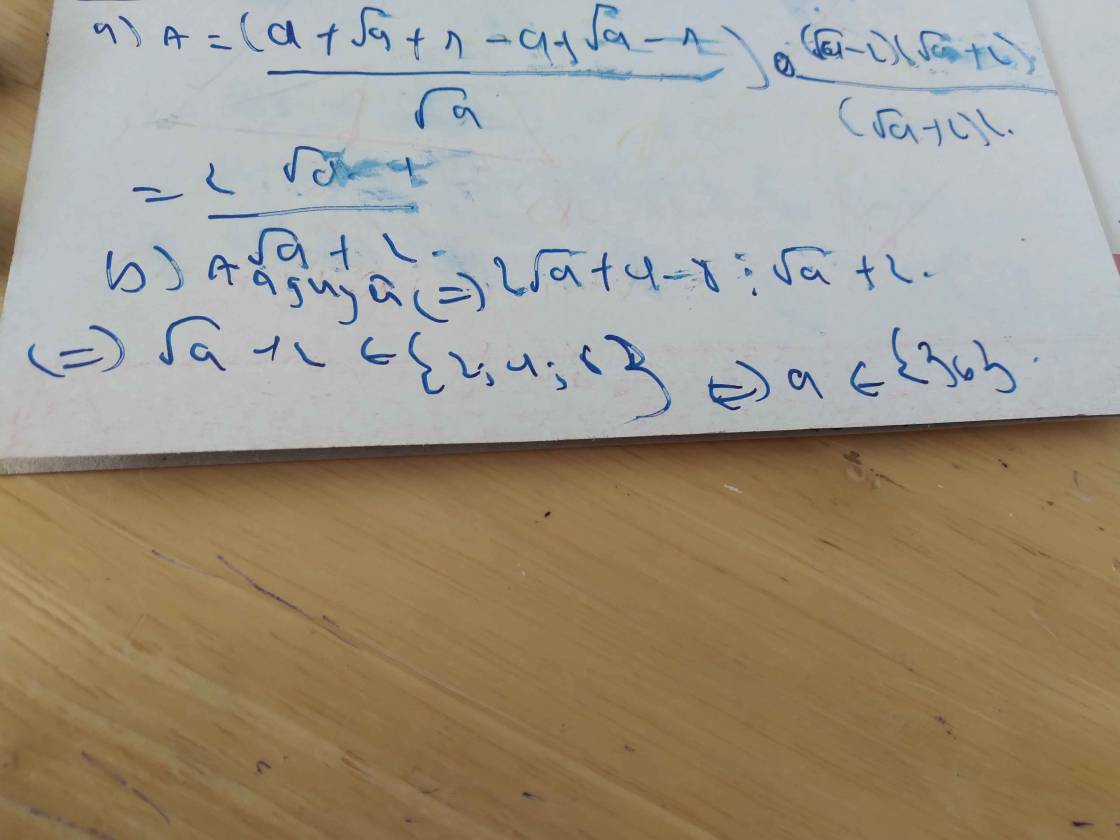 a) A = ( a + √a + 1 - a + √a - 1 / √a ) : (√a - 2)(√a + 2) / (√a + 2)2.
= 2 √a - 4 / √a + 2.
b) A nguy (=) 2√a + 4 - 8 ⋮ √a + 2.
(=) √a + 2 ∈ {2; 4; 8} (=) a ∈ {36}.